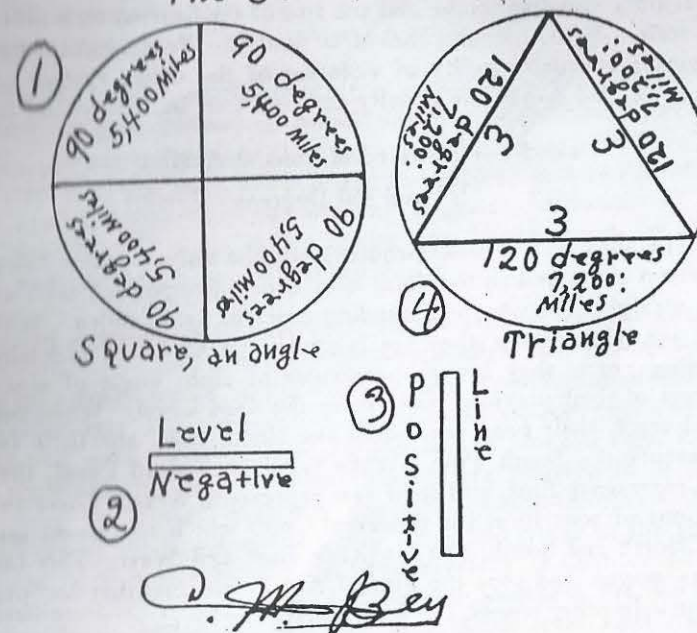 1
90 degrees
5,400 Miles
90 degrees
5,400 Miles
90 degrees
5,400 Miles
90 degrees
5,400 Miles
Square, an angle
120 degrees
7,200:
Miles
3
120 degrees
7,200:
Miles
3
3
120 degrees
7,200:
Miles
4
Triangle
Level
Negative
2
3
Positive
Line
C. M. Bey